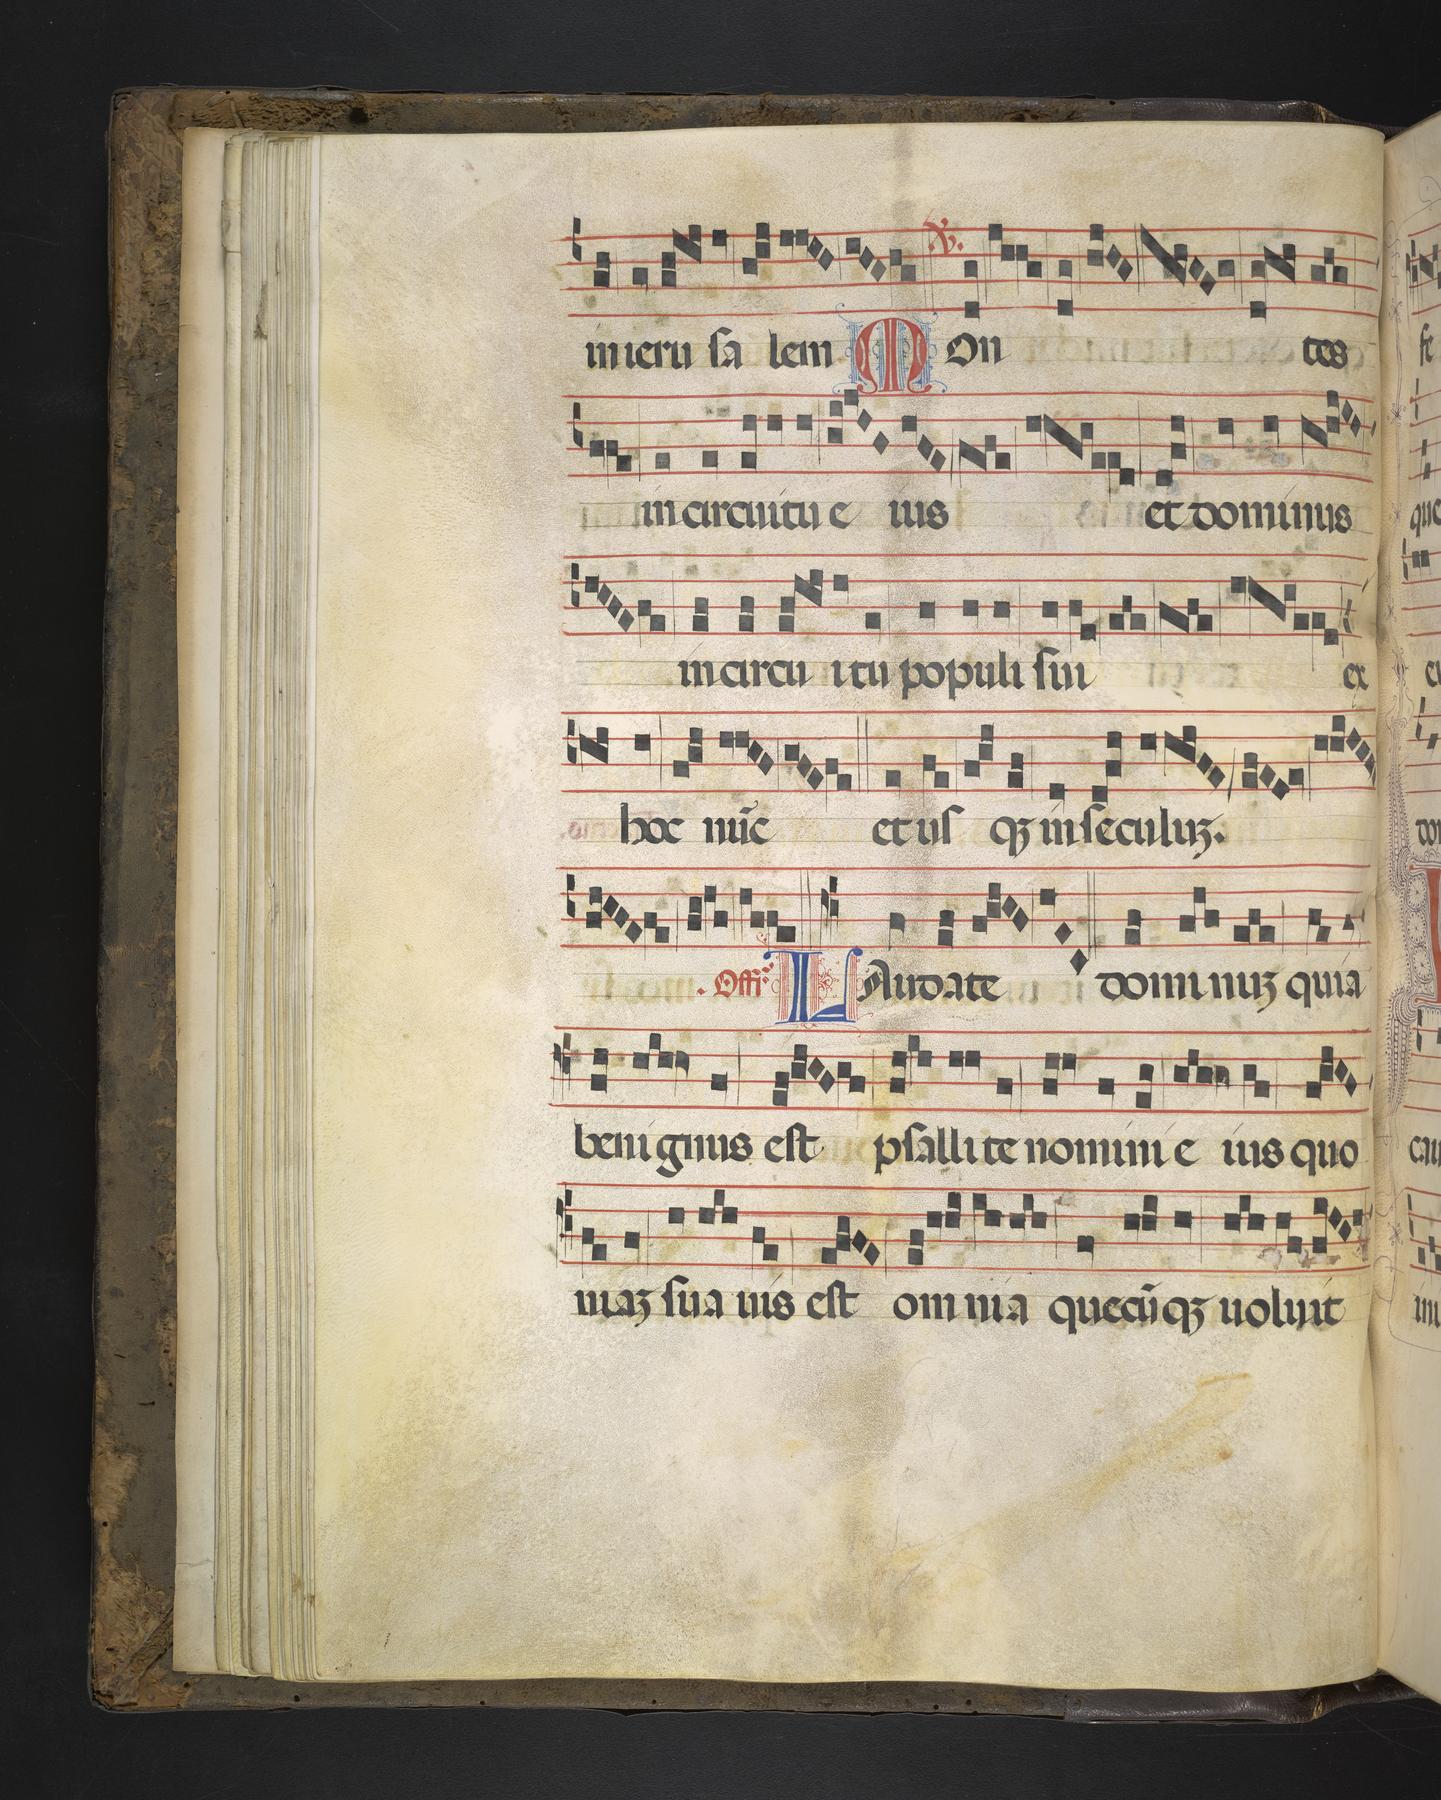 in ieru sa lem ℣. Mon tes
in circuitu e ius et dominus
in circu itu populi sui ex
hoc nūc et usqꝫ in seculuꝫ.
. Offr̄. Laudate dominuꝫ quia
benignus est psallite nomini e ius quo
niaꝫ sua uis est omnia quecūqꝫ uoluit